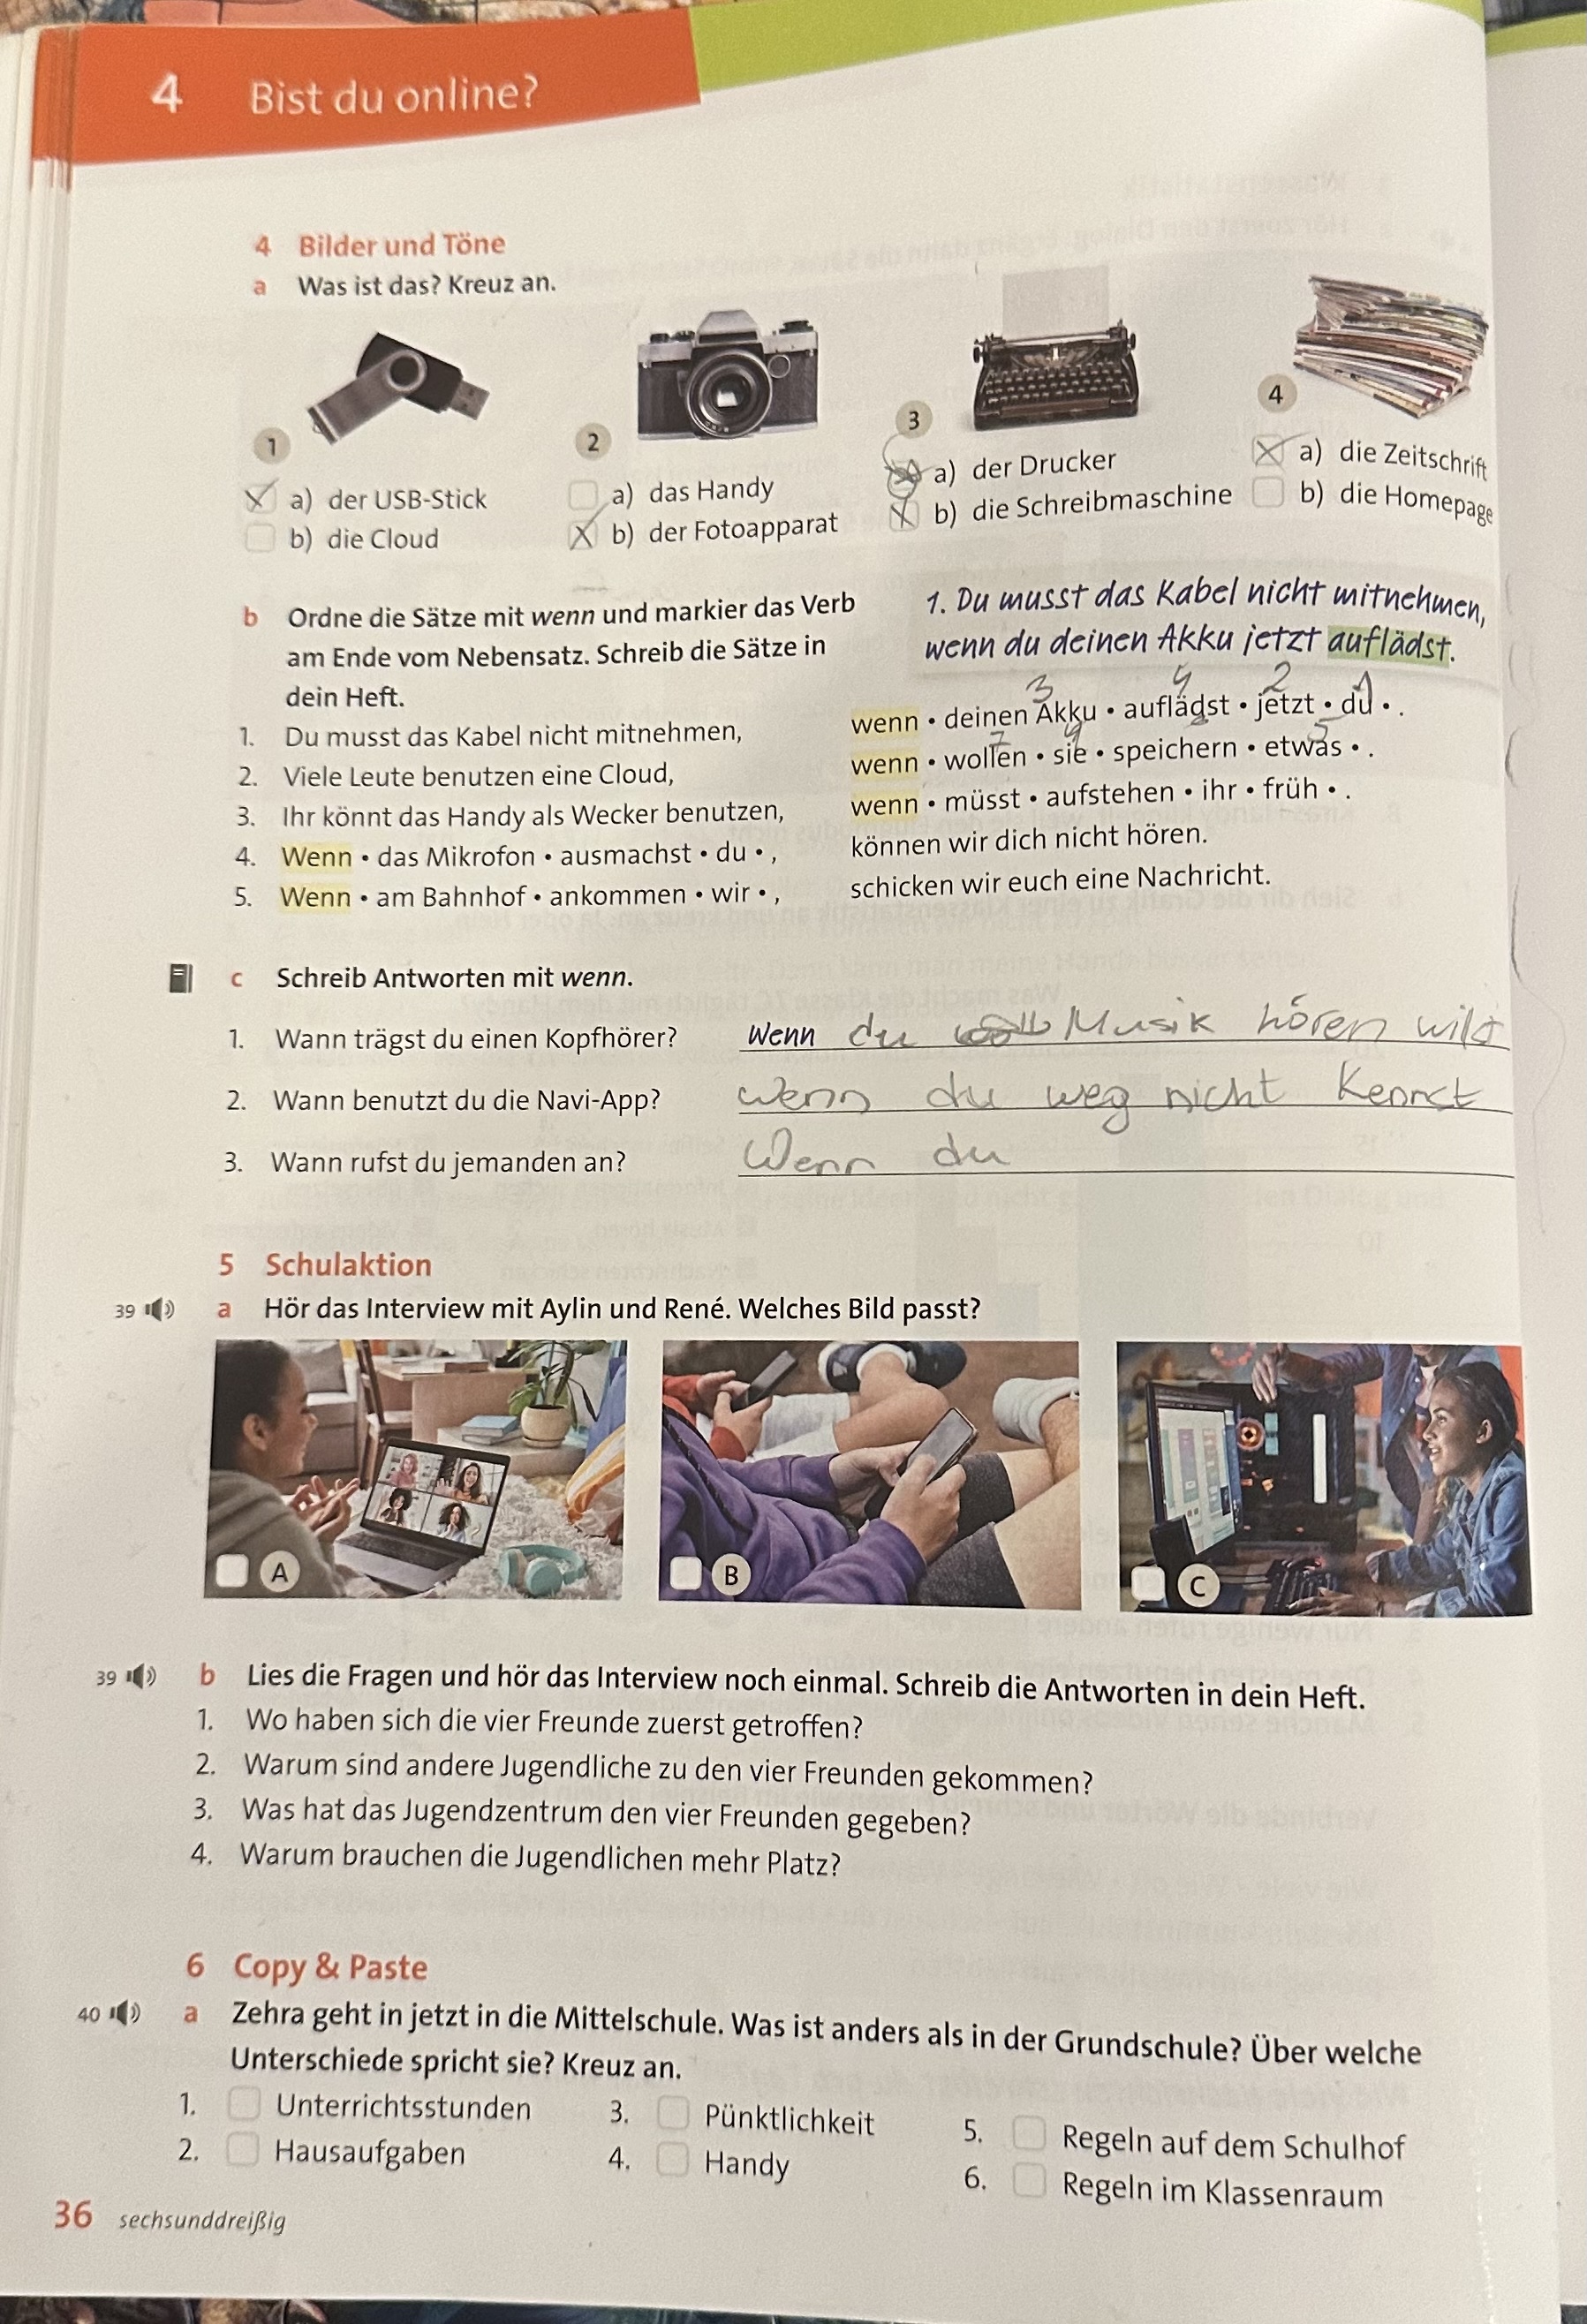 4 Bist du online?
4 Bilder und Töne
a Was ist das? Kreuz an.
1
2
3
4
a) der USB-Stick
b) die Cloud
a) das Handy
b) der Fotoapparat
a) der Drucker
b) die Schreibmaschine
a) die Zeitschrift
b) die Homepage
b Ordne die Sätze mit wenn und markier das Verb
am Ende vom Nebensatz. Schreib die Sätze in
dein Heft.
1. Du musst das Kabel nicht mitnehmen,
wenn du deinen Akku jetzt auflädst.
3 4 2 1
1. Du musst das Kabel nicht mitnehmen, wenn • deinen Akku • auflädst • jetzt • du • .
2. Viele Leute benutzen eine Cloud, wenn • wollen • sie • speichern • etwas • .
3. Ihr könnt das Handy als Wecker benutzen, wenn • müsst • aufstehen • ihr • früh • .
4. Wenn • das Mikrofon • ausmachst • du • , können wir dich nicht hören.
5. Wenn • am Bahnhof • ankommen • wir • , schicken wir euch eine Nachricht.
c Schreib Antworten mit wenn.
1. Wann trägst du einen Kopfhörer? Wenn du Musik hören
2. Wann benutzt du die Navi-App? wenn du weg nicht kennst
3. Wann rufst du jemanden an? Wenn du
5 Schulaktion
39 a Hör das Interview mit Aylin und René. Welches Bild passt?
A
B
C
39 b Lies die Fragen und hör das Interview noch einmal. Schreib die Antworten in dein Heft.
1. Wo haben sich die vier Freunde zuerst getroffen?
2. Warum sind andere Jugendliche zu den vier Freunden gekommen?
3. Was hat das Jugendzentrum den vier Freunden gegeben?
4. Warum brauchen die Jugendlichen mehr Platz?
6 Copy & Paste
40 a Zehra geht in jetzt in die Mittelschule. Was ist anders als in der Grundschule? Über welche
Unterschiede spricht sie? Kreuz an.
1. Unterrichtsstunden
2. Hausaufgaben
3. Pünktlichkeit
4. Handy
5. Regeln auf dem Schulhof
6. Regeln im Klassenraum
36 sechsunddreißig